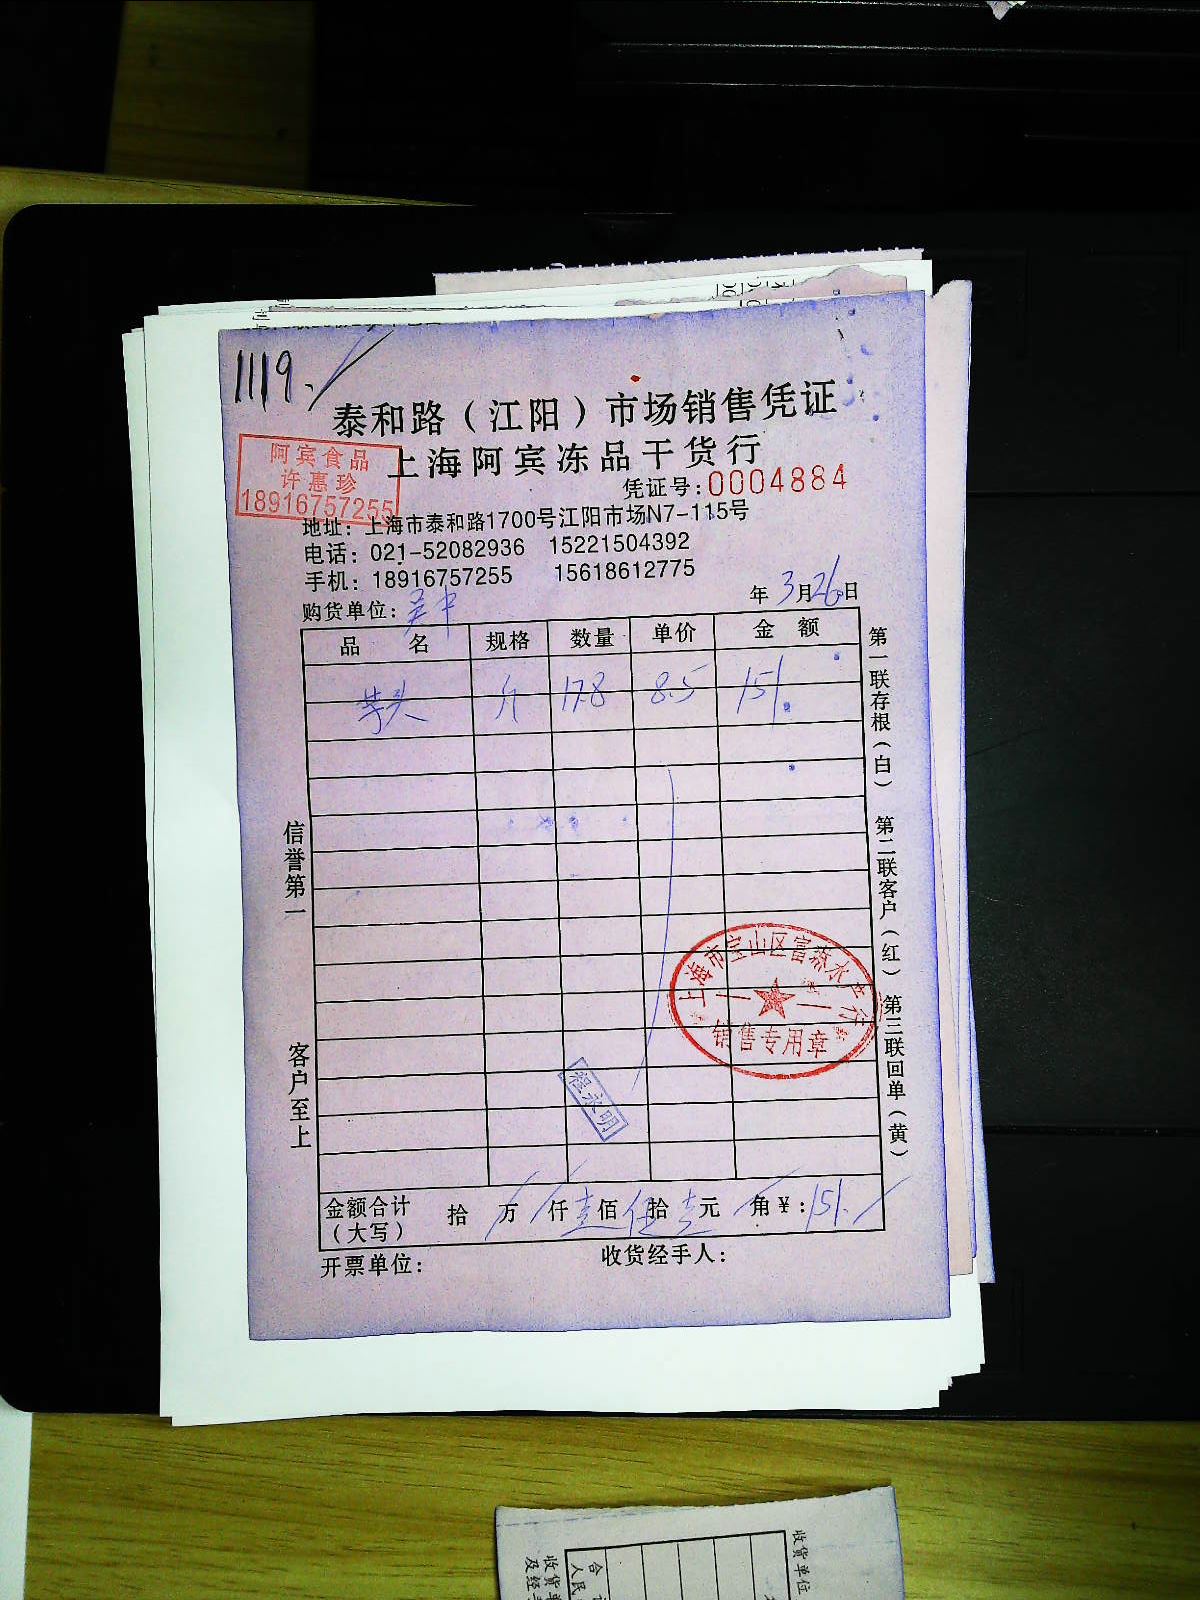 1119.
泰和路（江阳）市场销售凭证
阿宾食品
许惠珍
18916757255
上海阿宾冻品干货行
凭证号：0004884
地址：上海市泰和路1700号江阳市场N7-115号
电话：021-52082936 15221504392
手机：18916757255 15618612775
购货单位：吴中 年3月26日
品 名 规格 数量 单价 金 额
芋头 斤 17.8 8.5 151.
第一联存根（白） 第二联客户（红） 第三联回单（黄）
信誉第一
客户至上
上海市宝山区富森水产行
销售专用章
程永明
金额合计（大写） 拾 万 仟壹佰伍拾壹元 角¥：151.
开票单位： 收货经手人：
收货单位